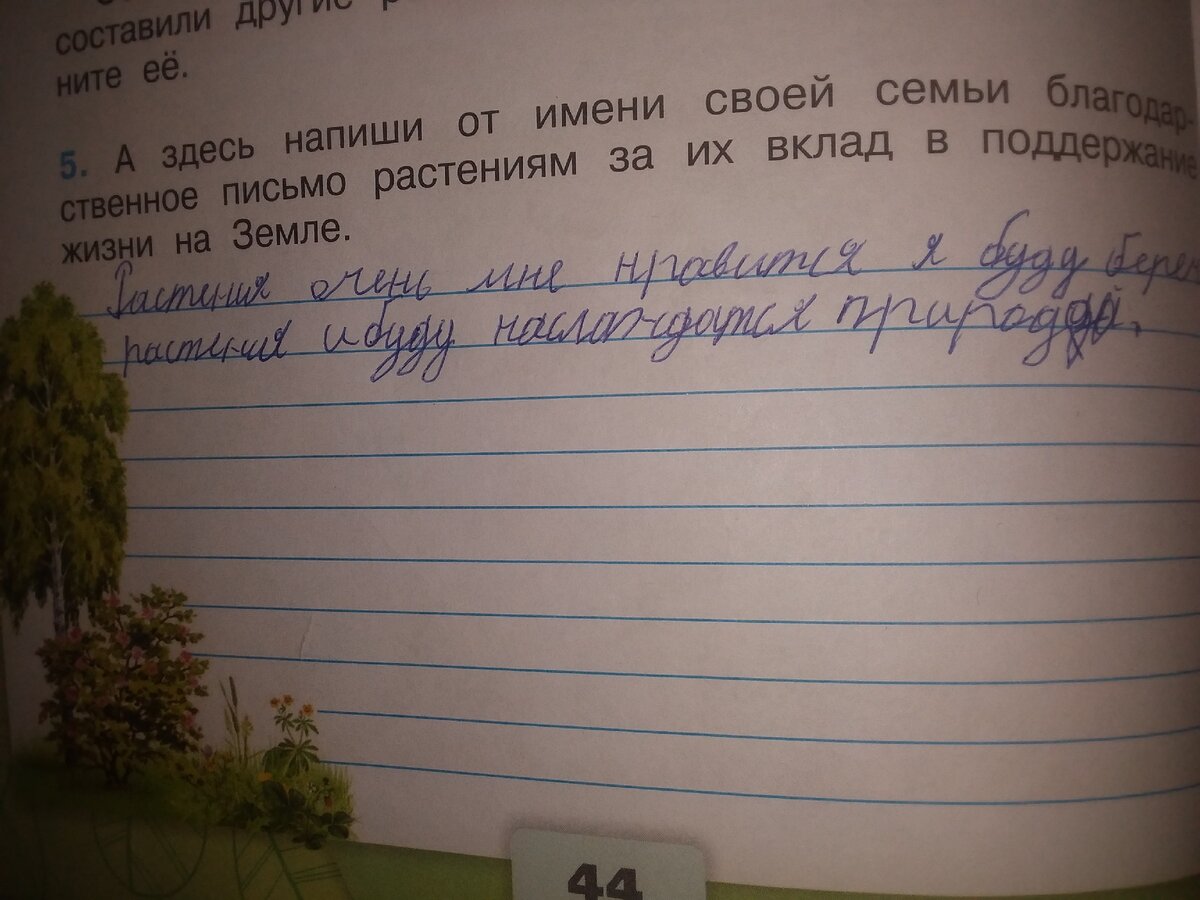 составили другие
ните её.
5. А здесь напиши от имени своей семьи благодар-
ственное письмо растениям за их вклад в поддержание
жизни на Земле.
Растения очень мне нравится я буду
растения и буду наслаждатся природой.
44